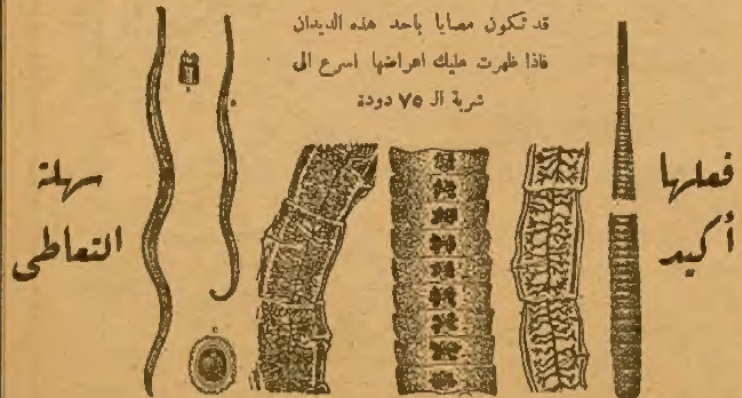 قد تكون مصابا باحد هذه الديدان
فاذا ظهرت عليك اعراضها اسرع الى
شربة الـ ٧٥ دودة
فعلها
أكيد
سهلة
التعاطى